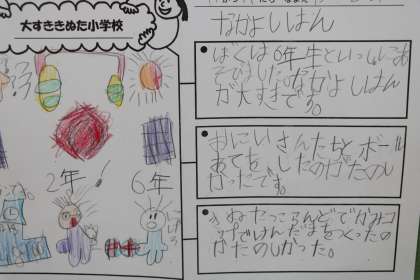 大すききぬた小学校
なかよしはん
ぼくは6年生といっしょに
そうじした なかよしはん
が大すきです。
おにいさんたちとボール
あてを したのがたのし
かったです。
きぬたっこらんどで
けんだまをつくったの
がたのしかった。
2年
6年